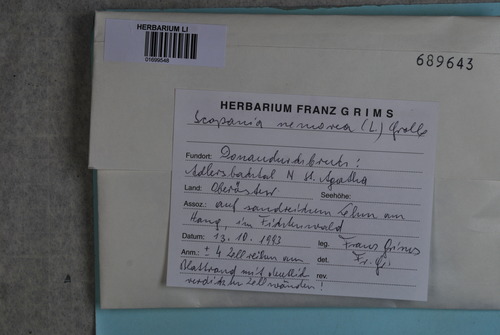 HERBARIUM LI
01699548
689643
HERBARIUM FRANZ GRIMS
Scapania nemorea (L.) Grolle
Fundort: Donaudurchbruch:
Adlersbachtal N St. Agatha
Land: Oberösterr. Seehöhe:
Assoz.: auf sandreichem Lehm am
Hang, im Fichtenwald
Datum: 13.10.1993 leg. Franz Grims
Anm.: ± 4 Zellreihen am det. Fr. Gr.
Blattrand mit deutlich rev.
verdickten Zellwänden!